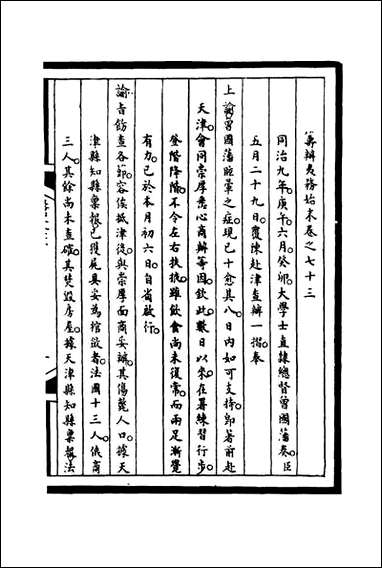 籌辦夷務始末卷之七十三
同治九年庚午六月癸卯大學士直隸總督曾國藩奏臣
五月二十九日覆陳赴津查辦一摺奉
上諭曾國藩眩暈之症現已十愈其八日內如可支持卽著前赴
天津會同崇厚悉心商辦等因欽此數日以來在署練習行步
登階降階不令左右扶掖雖飲食尚未復常而兩足漸覺
有力已於本月初六日自省啟行
諭旨飭查各節容俟抵津後與崇厚面商妥辦其傷斃人口據天
津縣知縣稟報已獲屍具妥為棺殮者法國十三人俄商
三人其餘尚未查確其焚毀房屋據天津縣知縣稟報法